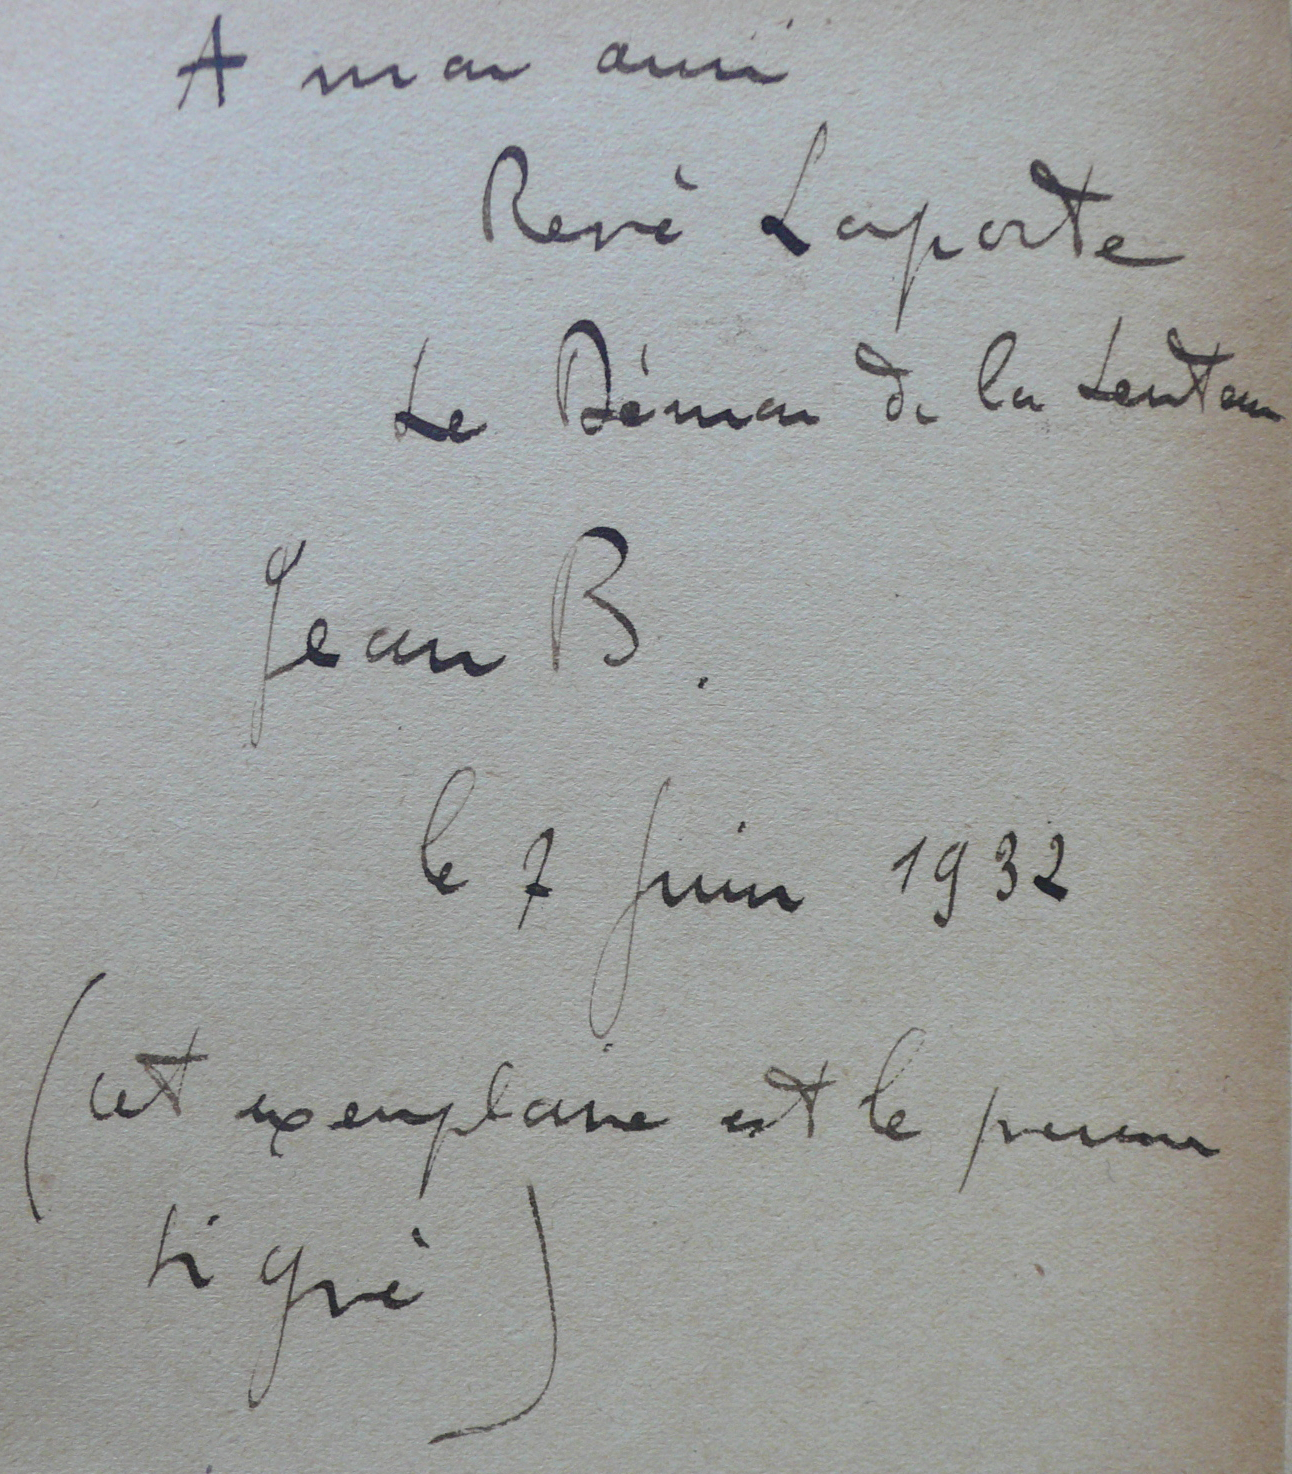 A mon ami
René Laporte
Le Démon de la Lenteur
Jean B.
le 7 Juin 1932
(cet exemplaire est le premier
signé)